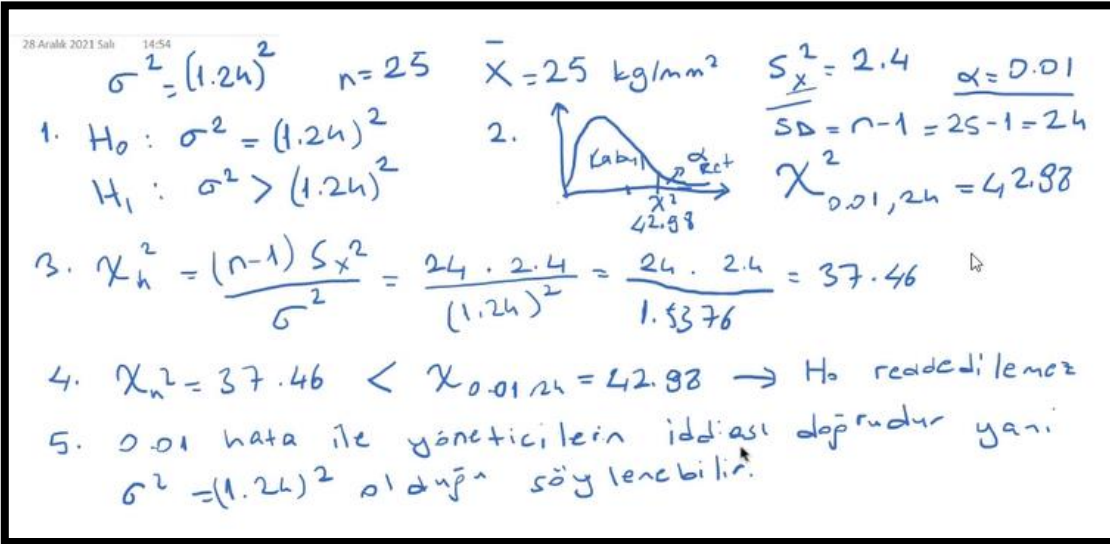 28 Aralık 2021 Salı 14:54
σ² = (1.24)² n = 25 x̄ = 25 kg/mm² Sₓ² = 2.4 α = 0.01
SD = n-1 = 25-1 = 24
1. H₀ : σ² = (1.24)² 2. Kabul α Ret
H₁ : σ² > (1.24)² χ² 42.98 χ²₀.₀₁,₂₄ = 42.98
3. χₕ² = (n-1) Sₓ² / σ² = 24 . 2.4 / (1.24)² = 24 . 2.4 / 1.5376 = 37.46
4. χₕ² = 37.46 < χ₀.₀₁,₂₄ = 42.98 → H₀ reddedilemez
5. 0.01 hata ile yöneticilerin iddiası doğrudur yani
σ² = (1.24)² olduğu söylenebilir.